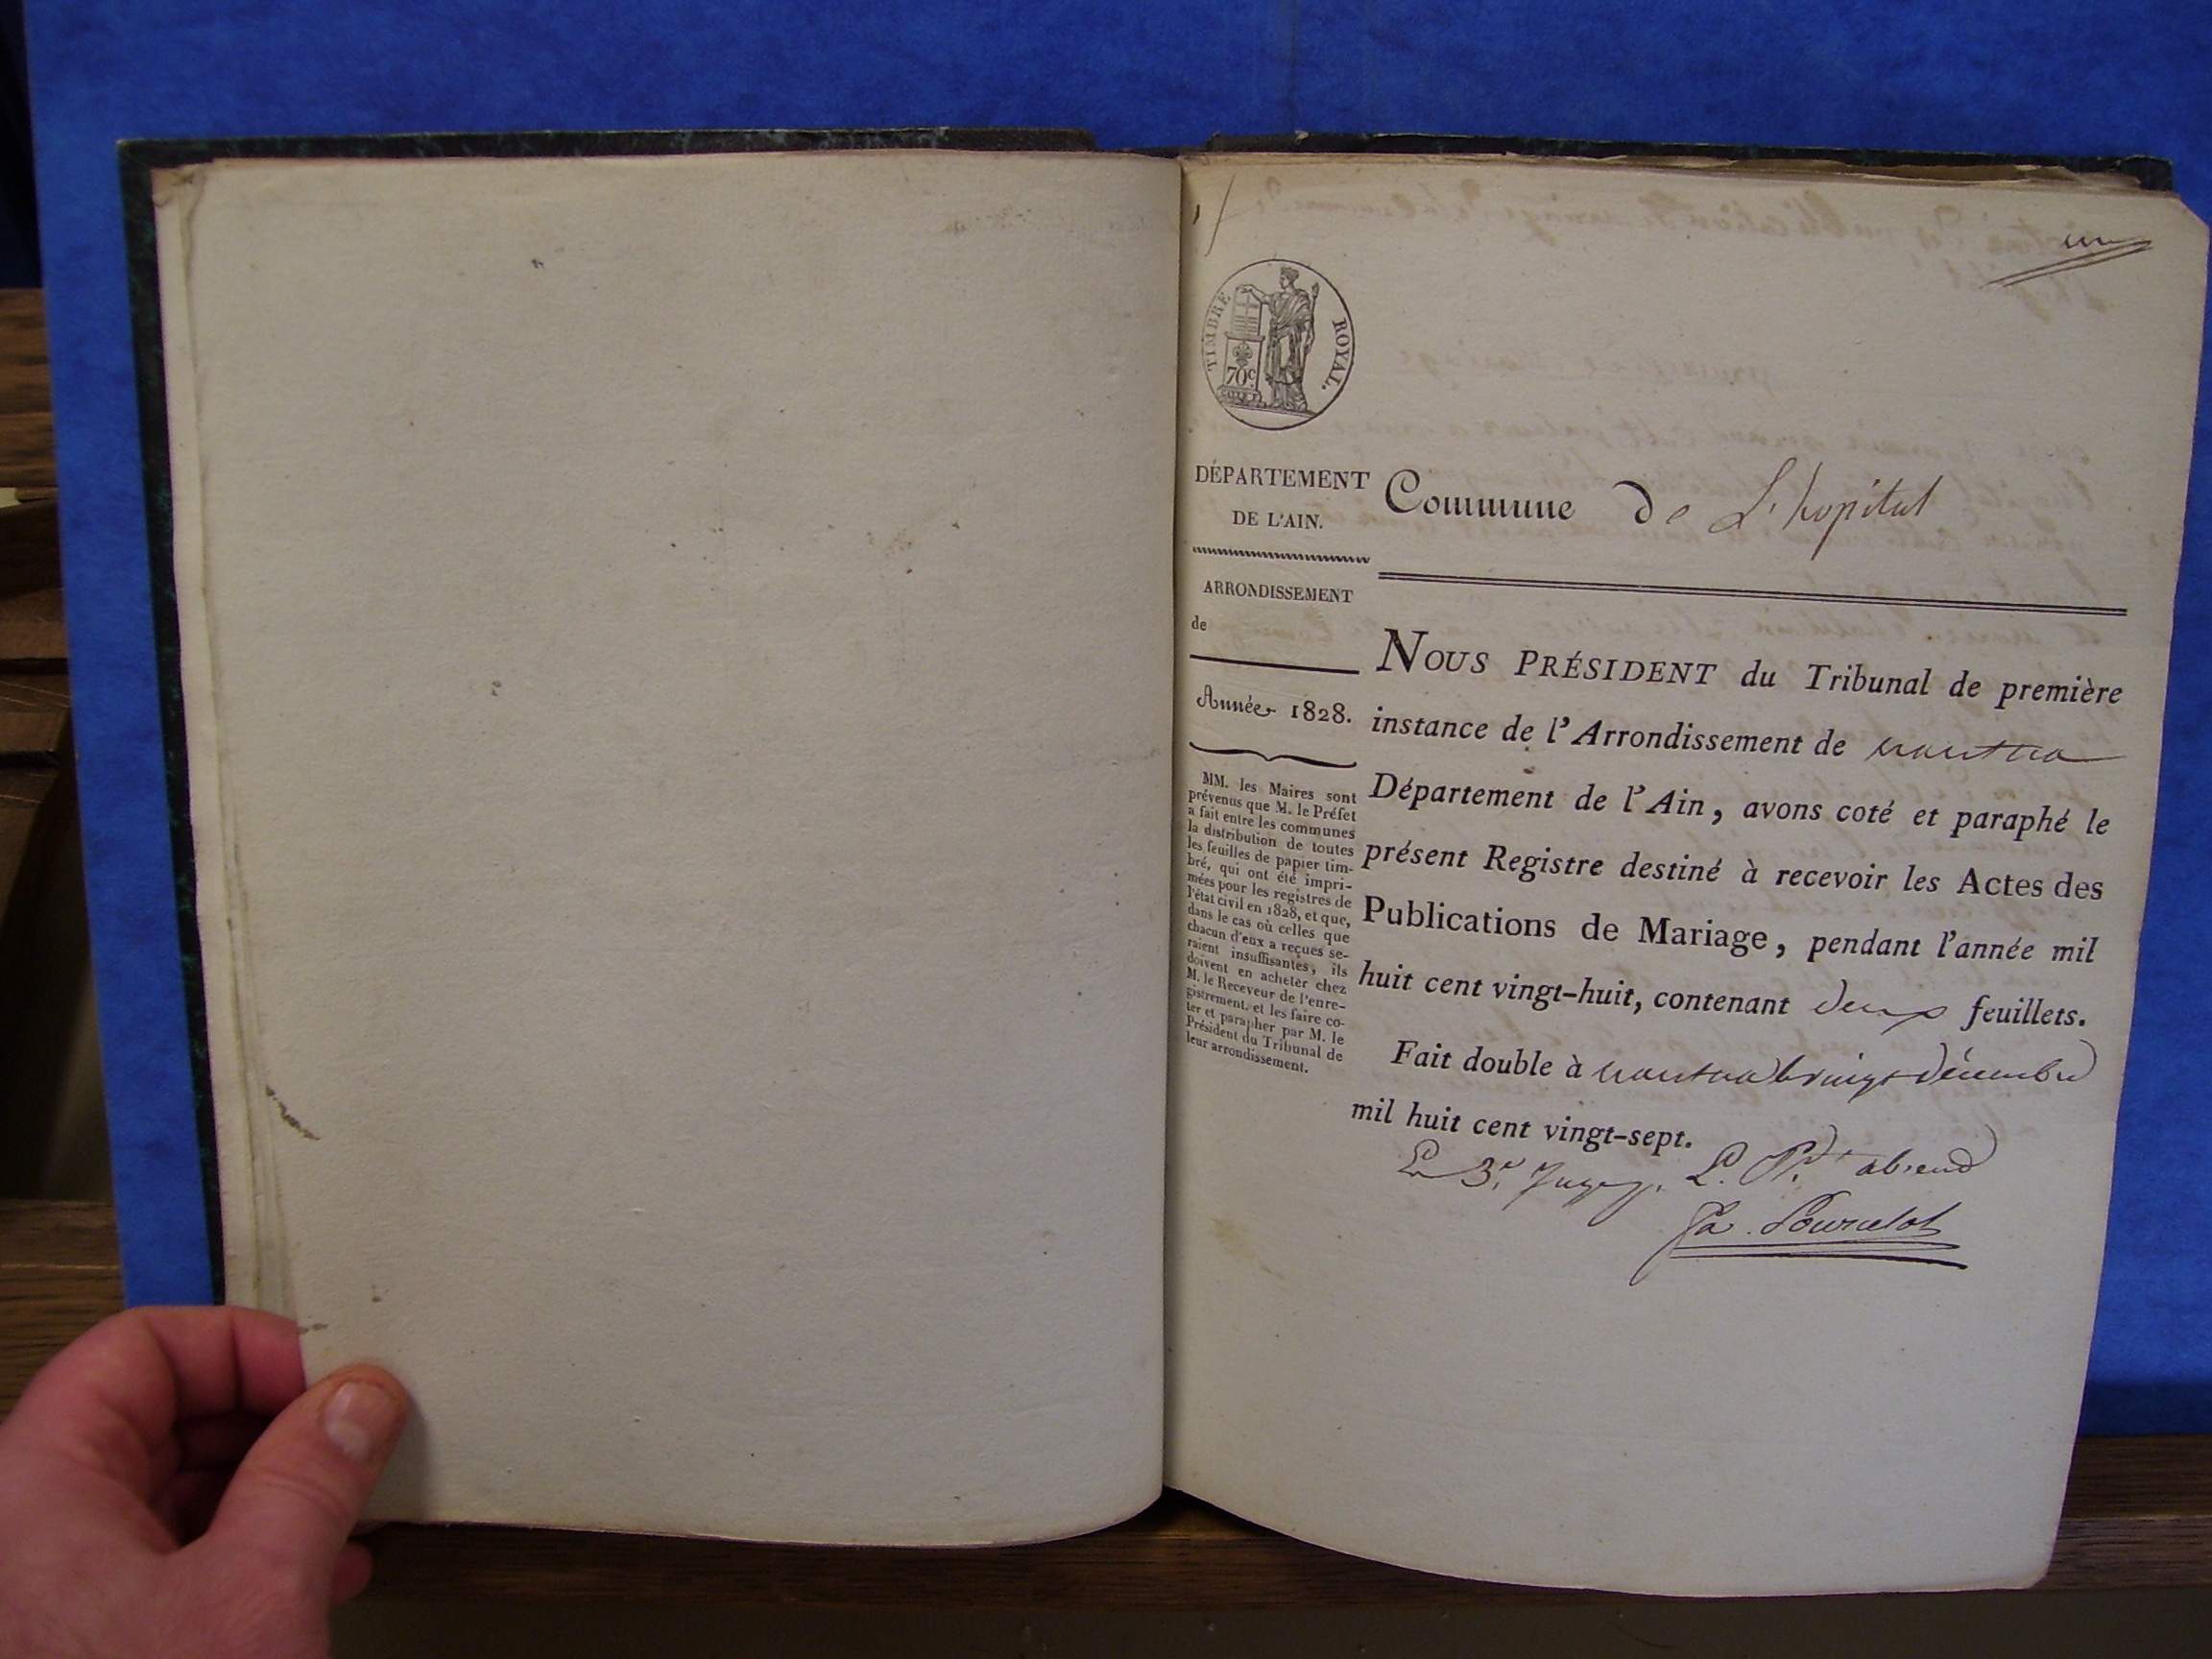 un
TIMBRE ROYAL.
70c.
DÉPARTEMENT
DE L'AIN.
ARRONDISSEMENT
de
Année 1828.
MM. les Maires sont
prévenus que M. le Préfet
a fait entre les communes
la distribution de toutes
les feuilles de papier tim-
bré, qui ont été impri-
mées pour les registres de
l'état civil en 1828, et que,
dans le cas où celles que
chacun d'eux a reçues se-
raient insuffisantes, ils
doivent en acheter chez
M. le Receveur de l'enre-
gistrement, et les faire co-
ter et parapher par M. le
Président du Tribunal de
leur arrondissement.
Commune de L'hopital
NOUS PRÉSIDENT du Tribunal de première
instance de l'Arrondissement de nantua
Département de l'Ain, avons coté et paraphé le
présent Registre destiné à recevoir les Actes des
Publications de Mariage, pendant l'année mil
huit cent vingt-huit, contenant deux feuillets.
Fait double à nantua le vingt décembre
mil huit cent vingt-sept.
Le 3e. Juge, L. Pt. absend